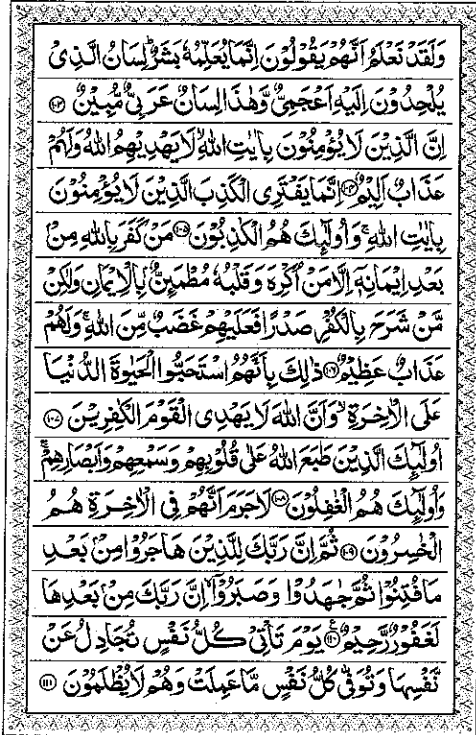 وَلَقَدْ نَعْلَمُ اَنَّهُمْ يَقُوْلُوْنَ اِنَّمَا يُعَلِّمُهٗ بَشَرٌ ؕ لِسَانُ الَّذِیْ
یُلْحِدُوْنَ اِلَیْهِ اَعْجَمِیٌّ وَّهٰذَا لِسَانٌ عَرَبِیٌّ مُّبِیْنٌ ۝۱۰۳
اِنَّ الَّذِیْنَ لَا یُؤْمِنُوْنَ بِاٰیٰتِ اللّٰهِ ۙ لَا یَهْدِیْهِمُ اللّٰهُ وَلَهُمْ
عَذَابٌ اَلِیْمٌ ۝۱۰۴ اِنَّمَا یَفْتَرِی الْكَذِبَ الَّذِیْنَ لَا یُؤْمِنُوْنَ
بِاٰیٰتِ اللّٰهِ ۚ وَاُولٰٓئِكَ هُمُ الْكٰذِبُوْنَ ۝۱۰۵ مَنْ كَفَرَ بِاللّٰهِ مِنْۢ
بَعْدِ اِیْمَانِهٖۤ اِلَّا مَنْ اُكْرِهَ وَقَلْبُهٗ مُطْمَىِٕنٌّۢ بِالْاِیْمَانِ وَلٰكِنْ
مَّنْ شَرَحَ بِالْكُفْرِ صَدْرًا فَعَلَیْهِمْ غَضَبٌ مِّنَ اللّٰهِ ۚ وَلَهُمْ
عَذَابٌ عَظِیْمٌ ۝۱۰۶ ذٰلِكَ بِاَنَّهُمُ اسْتَحَبُّوا الْحَیٰوةَ الدُّنْیَا
عَلَی الْاٰخِرَةِ ۙ وَاَنَّ اللّٰهَ لَا یَهْدِی الْقَوْمَ الْكٰفِرِیْنَ ۝۱۰۷
اُولٰٓئِكَ الَّذِیْنَ طَبَعَ اللّٰهُ عَلٰی قُلُوْبِهِمْ وَسَمْعِهِمْ وَاَبْصَارِهِمْ ۚ
وَاُولٰٓئِكَ هُمُ الْغٰفِلُوْنَ ۝۱۰۸ لَا جَرَمَ اَنَّهُمْ فِی الْاٰخِرَةِ هُمُ
الْخٰسِرُوْنَ ۝۱۰۹ ثُمَّ اِنَّ رَبَّكَ لِلَّذِیْنَ هَاجَرُوْا مِنْۢ بَعْدِ
مَا فُتِنُوْا ثُمَّ جٰهَدُوْا وَصَبَرُوْۤا ۙ اِنَّ رَبَّكَ مِنْۢ بَعْدِهَا
لَغَفُوْرٌ رَّحِیْمٌ ۝۱۱۰ یَوْمَ تَاْتِیْ كُلُّ نَفْسٍ تُجَادِلُ عَنْ
نَّفْسِهَا وَتُوَفّٰی كُلُّ نَفْسٍ مَّا عَمِلَتْ وَهُمْ لَا یُظْلَمُوْنَ ۝۱۱۱